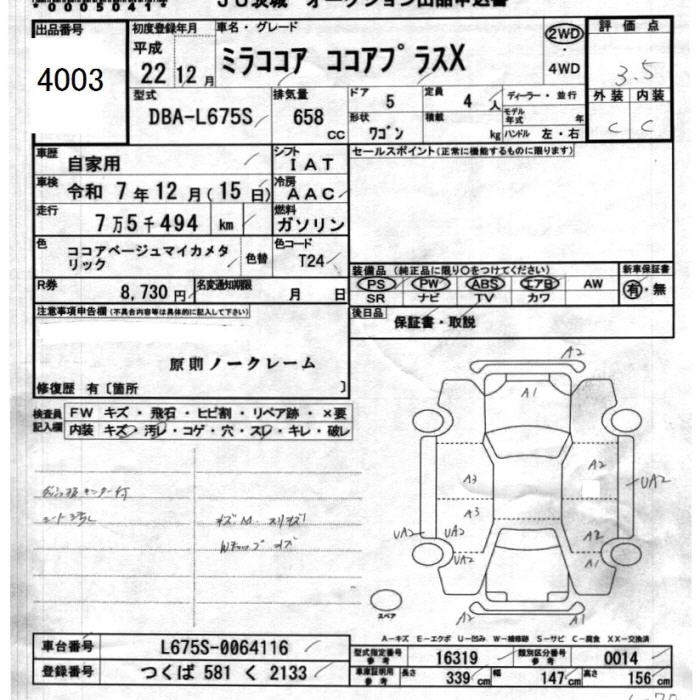 JU茨城 オークション出品申込書
出品番号
4003
初度登録年月
平成
22年12月
車名・グレード
ミラココア ココアプラスX
2WD
・
4WD
評価点
3.5
外装 内装
C C
型式
DBA-L675S
排気量
658
CC
ドア
5
定員
4人
形状
ワゴン
積載
kg
ディーラー・並行
モデル年式 年
ハンドル 左・右
車歴
自家用
シフト
IAT
車検
令和 7年12月(15日)
冷房
AAC
走行
7万5千494 km
燃料
ガソリン
色
ココアベージュマイカメタ
リック
色替
色コード
T24
R券
8,730円
名変通知期限
月 日
セールスポイント(正常に機能するものに限ります)
装備品 (純正品に限り○をつけてください)
PS PW ABS エアB AW
SR ナビ TV カワ
新車保証書
有・無
後日品
保証書・取説
注意事項申告欄(不具合内容等は具体的に記入して下さい)
原則ノークレーム
修復歴 有〔箇所 〕
検査員
記入欄
FW キズ・飛石・ヒビ割・リペア跡・×要
内装 キズ・汚レ・コゲ・穴・スレ・キレ・破レ
A2
A1
A2
A3
A3
UA2
UA2
UA2
A2
UA2
A1
A2
A2
スペア
A-キズ E-エクボ U-凹み W-補修跡 S-サビ C-腐食 XX-交換済
車台番号
L675S-0064116
登録番号
つくば 581 く 2133
型式指定番号
参考
16319
類別区分番号
参考
0014
車庫証明用
参考
長さ 339cm 幅 147cm 高さ 156cm